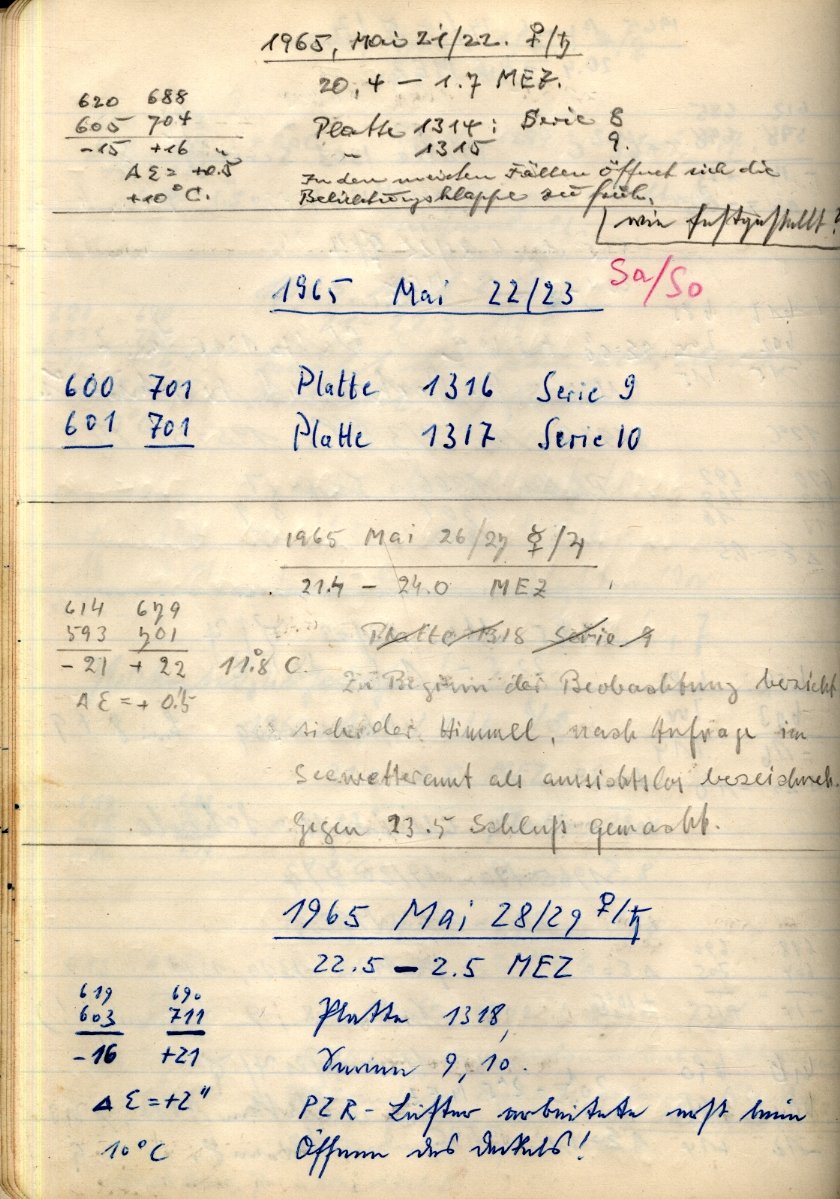 1965, Mai 21/22. ♀/♄
20,4 — 1.7 MEZ.
620 688
605 704
-15 +16 "
Δ Σ = +0.5
+10°C.
Platte 1314: Serie 8
" 1315 9.
In den meisten Fällen öffnet sich die
Belichtungsklappe zu früh.
wie festgestellt?
1965 Mai 22/23
Sa/So
600 701 Platte 1316 Serie 9
601 701 Platte 1317 Serie 10
1965 Mai 26/27 ☿/♃
21.4 — 24.0 MEZ
614 679
593 701
-21 + 22 11.8° C.
Δ Σ = + 0.5
Platte 1318 Serie 9
Zu Beginn der Beobachtung bezieht
sich der Himmel, nach Anfrage im
Seewetteramt als aussichtslos bezeichnet.
Gegen 23.5 Schluß gemacht.
1965 Mai 28/29 ♀/♄
22.5 — 2.5 MEZ
619 690
603 711
-16 +21
Δ Σ = +2"
10°C
Platte 1318,
Serien 9, 10.
PZR-Lüfter arbeitete erst beim
Öffnen des Deckels!